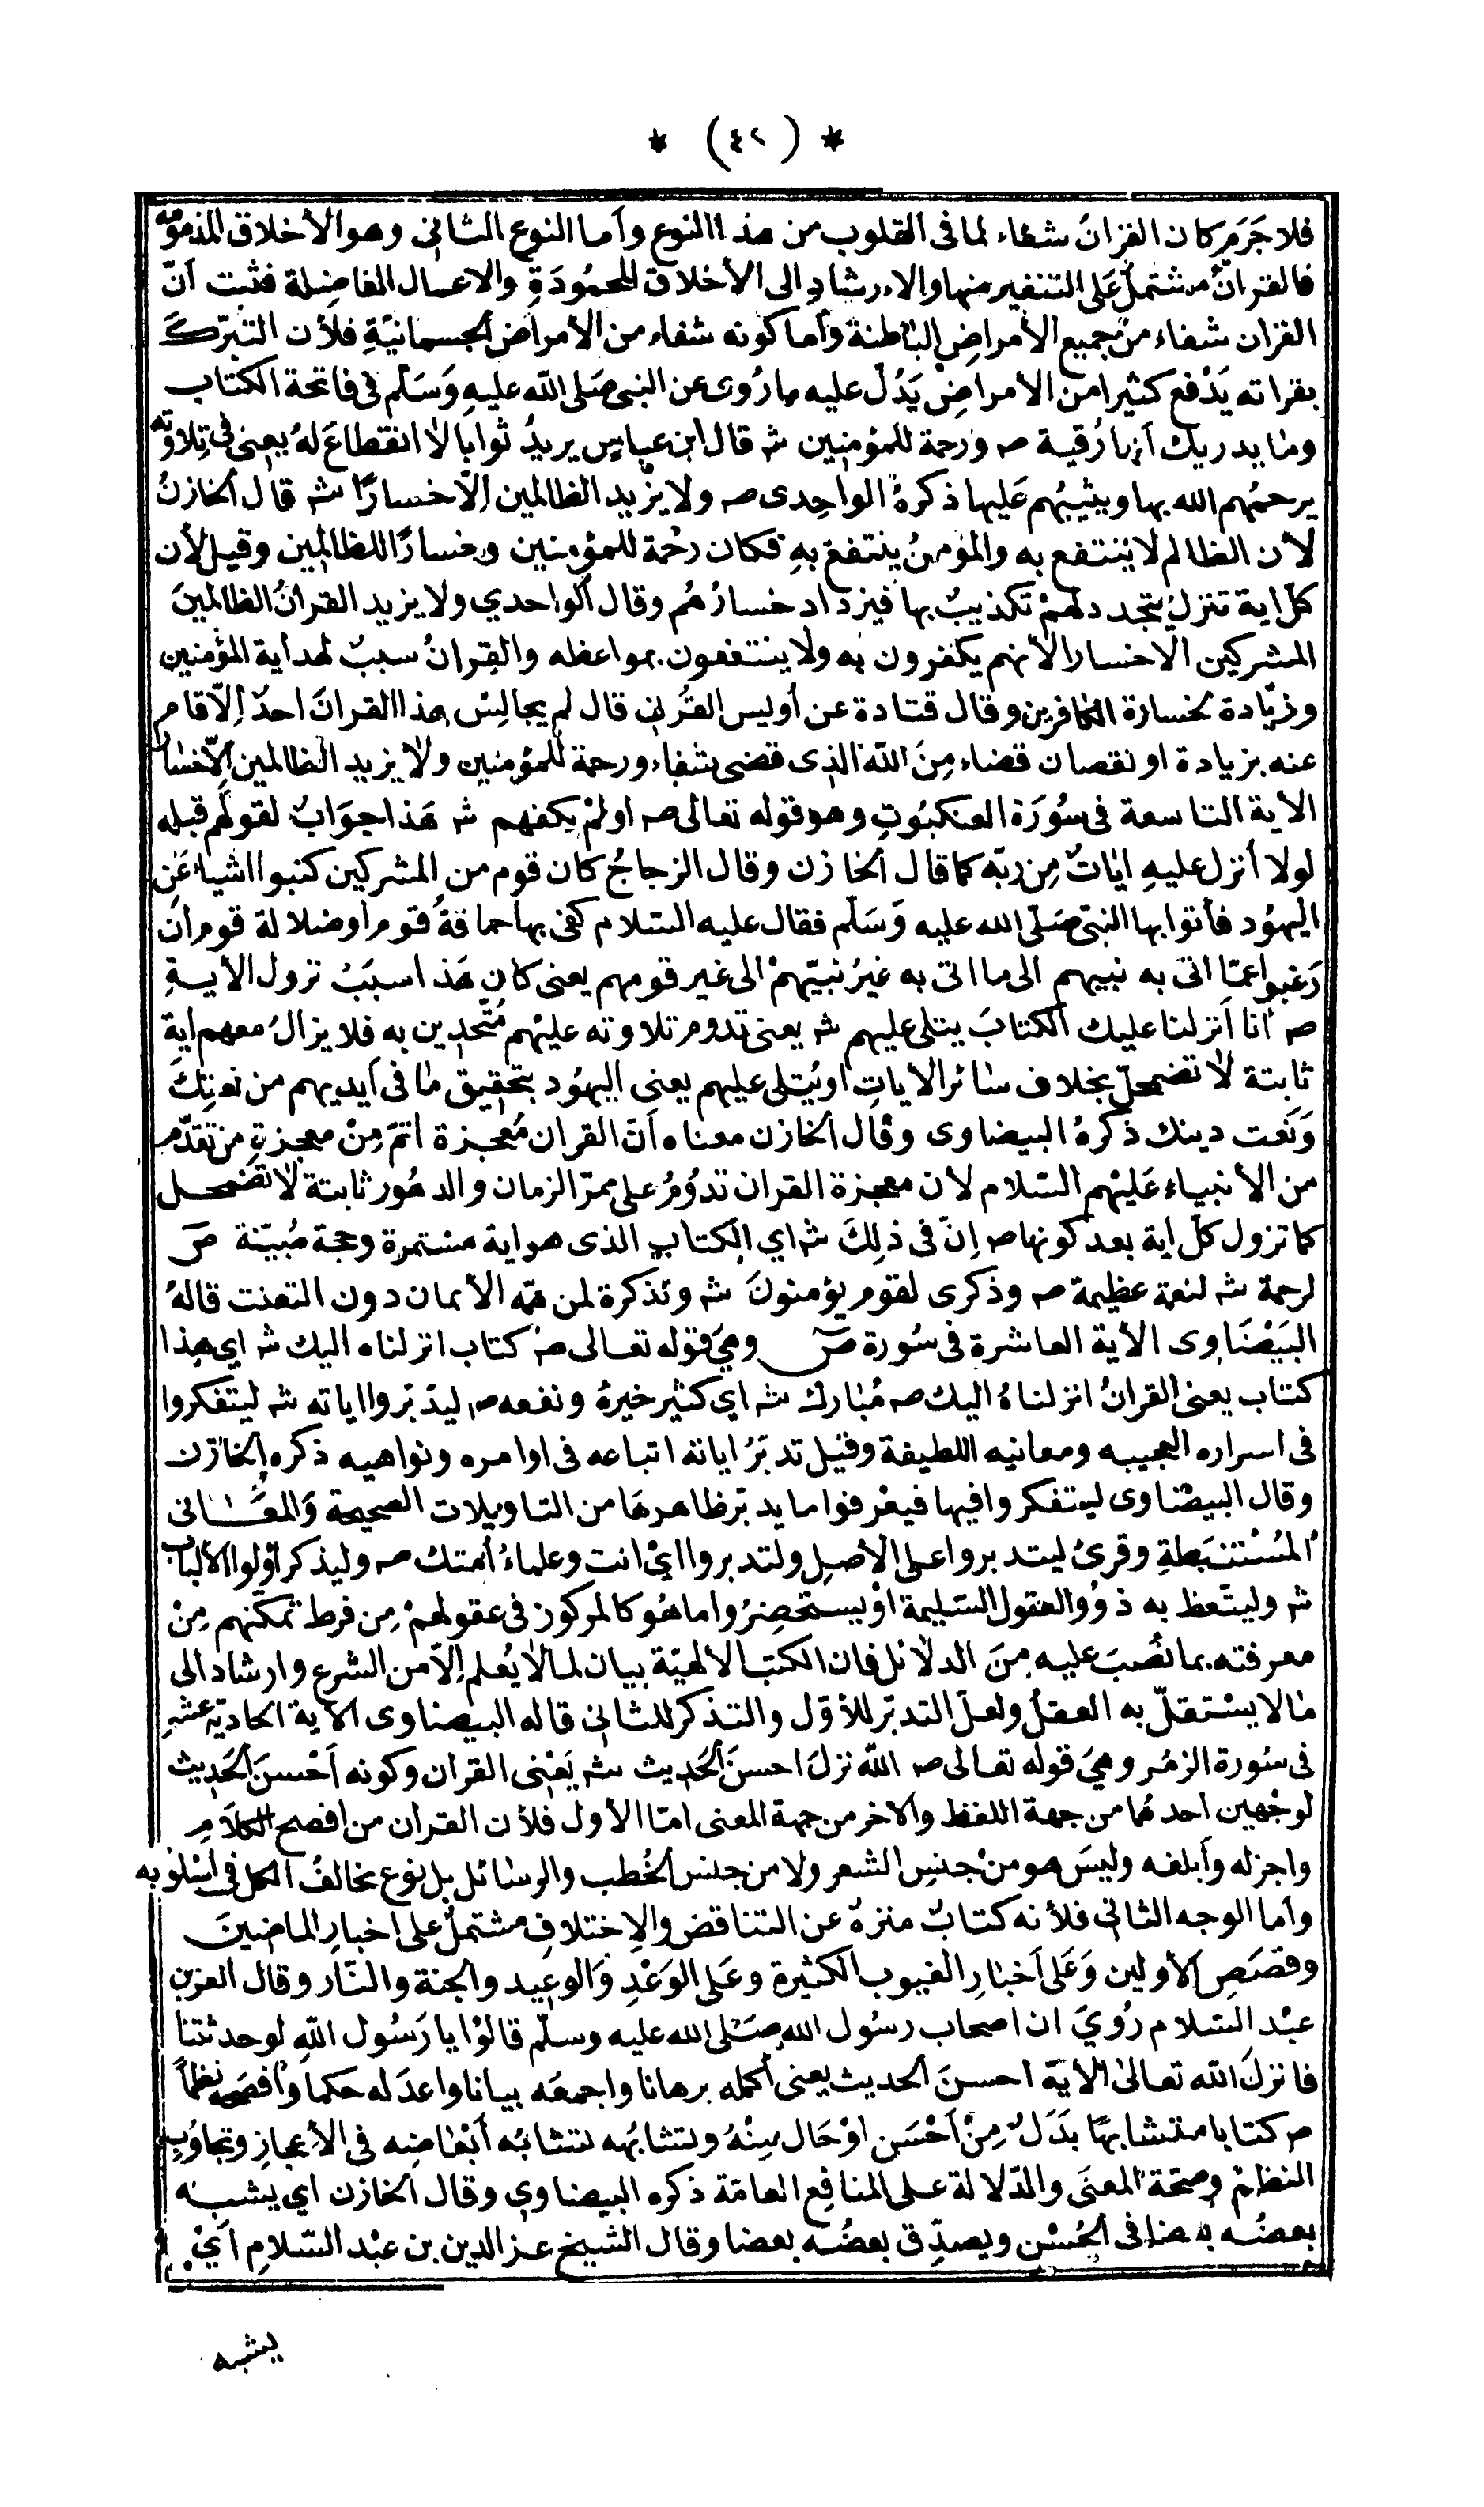 * (٤٢) *
فلا جَرَمَ كان القرانُ شفاء لما فى القلوب من هذا النوع وأما النوع الثانى وهو الأخلاق المذمومة
فالقرانُ مشتملٌ عَلى التنفير منها والارشادِ الى الأخلاق المحمُودَةِ والاعمال الفاضِلة فثبت أنّ
القران شفاء من جميع الأمراضِ الباطنة وأما كونه شفاء من الأمراض الجسمانيّةِ فلأن التبرّك
بقراته يَدْفع كثيرا من الأمراضِ يَدُلّ عليه ما رُوى عن النبى صَلى الله عليهِ وَسَلم فى فاتحة الكتاب
وما يدريك أنها رُقية صـ ورحمة للمؤمنين شـ قال ابن عباسٍ يريدُ ثوابا لا انقطاعَ لهُ يعنى فى تلاوته
يرحمُهم الله بها ويثيبُهم عَليها ذكرهُ الواحِدى صـ ولا يزيد الظالمين إلّا خسارًا شـ قال الخازنُ
لأن الظالم لا ينتفع به والمؤمنُ ينتفعُ بهِ فكان رحْمة للمؤمنين وخسارًا للظالمين وقيل لأن
كلّ اية تنزلُ يتجدد لهمْ تكذيبٌ بها فيزداد خسارُهُم وقال الواحدي ولا يزيد القرانُ الظالمينَ
المشركين الا خسارا لأنهم يكفرون به ولا ينتفعون بمواعظه والقرانُ سببٌ لهداية المؤمنين
وزيادة لخسارة الكافرين وقال قتادة عن أويس القَرنى قال لم يجالِسْ هذا القرانَ احدٌ إلّا قام
عنه بزيادة او نقصان قضاء مِنَ الله الذى قضى شفاء ورحمة للمؤمنين ولا يزيد الظالمين إلّا خسارا
الأية التاسعة فى سُورَة العنكبُوتِ وهو قوله تعالى صـ اولمْ يكفهم شـ هَذا جوَابٌ لقولهم قبله
لولا أنزل عليهِ اياتٌ مِن ربّه كما قال الخازن وقال الزجاجُ كان قوم من المشركين كتبوا اشياءَ عَنِ
اليهُود فأتوا بها النبىّ صَلّى الله عليه وَسَلّم فقال عليه السّلام كفى بها حماقةُ قوم أوضلالة قوم أن
رَغبوا عمّا اتى به نبيهم الى ما اتى به غيرُ نبيّهمْ الى غير قومهم يعنى كان هَذا سبَبُ نزول الأيةِ
صـ أنا أنزلنا عليك الكتابَ يتلى عليهم شـ يعنى تدوم تلاوته عليْهم مُتّحدين به فلا يزالُ معهم ايةٌ
ثابتة لا تضمحلّ بخلاف سائر الاياتِ او يُتلى عليهم يعنى اليهُود بتحقيق ما فى أيديهم من نعتِكَ
وَنَعت دينك ذكرهُ البيضاوى وقال الخازن معناه أنّ القران مُعجزة اتمّ مِنْ معجزةِ من تقدّم
من الأنبياء عَليْهم السّلام لأن معجزة القران تدُومُ على ممرّ الزمان والدهُور ثابتة لا تضمحل
كما تزول كلّ اية بعد كونها صـ إنّ فى ذلِكَ شـ اي الكتاب الذى هو اية مستمرة وحجة مُبيّنة صـ
لرحمة شـ لنعمة عظيمة صـ وذكرى لقوم يؤمنونَ شـ وتذكرة لمن همّه الأيمان دون التعنت قالهُ
البَيْضَاوى الأية العاشرة فى سُورة ص وهىَ قوله تعالى صـ كتاب انزلناه اليك شـ اي هذا
كتاب يعنى القرانُ انزلناهُ اليك صـ مُبارك شـ اي كثير خيرهُ ونفعه صـ ليدّبّروا اياته شـ ليتفكروا
فى اسراره العجيبه ومعانيه اللطيفة وقيْل تدبّرُ اياته اتباعه فى اوامره ونواهيه ذكره الخازن
وقال البيضاوى ليتفكروا فيها فيعْرفوا ما يدبّر ظاهرهَا من التاويلات الصحيحة وَالمعَانى
المُسْتنبَطةِ وقرئ ليتدبروا على الأصلِ ولتدبروا ايْ انت وعلماءُ أمتك صـ وليذكر أولوا الألباب
شـ وليتّعظ به ذوُو العقول السّليمة أو يستحضِرُوا ما هُو كالمركوز فى عقولهمْ مِن فرط تمكّنهم مِنْ
معرفته بما نُصبَ عليه مِنَ الدلائل فان الكتب الالهيّة بيان لما لا يُعلم إلّا من الشرع وارشاد الى
ما لا يسْتقلّ به العقل ولعلّ التدبّر للأوّل والتذكر للثانى قاله البيضاوى الأية الحادية عشر
فى سُورة الزمُر وهىَ قوله تعالى صـ الله نزلَ احسنَ الحَديث شـ يَعْنى القران وكونه أحْسنَ الحَديث
لوجْهين احدهُما من جهة اللفظ والاخر من جهة المعنى امّا الأول فلأن القران من افصح الكلام
واجزله وأبلغه وليسَ هو مِنْ جنسِ الشعر ولا من جنس الخُطب والرسائل بل نوع يخالفُ الكل فى أسْلوبه
وأما الوجه الثانى فلأنه كتابٌ منزهٌ عن التناقض والاختلافِ مشتملٌ على اخبارِ الماضينَ
وقصَصِ الأولين وَعَلى أخبارِ الغيوب الكثيرة وعَلى الوَعْدِ وَالوعيد والجنة والنّار وقال العز بن
عبْد السّلام رُويَ ان اصحاب رسُول الله صَلى الله عليه وسلّم قالوْا يا رَسُول اللهِ لو حدثتنا
فانزلَ الله تعالى الأيَة احسنَ الحديث يعنى أكمله برهانا واجمعَه بيانا واعدَله حكماً وأفصَحه نظماً
صـ كتابا متشابهًا بدَلٌ مِنْ أحْسَن اوْ حَال مِنْهُ وتشابُهه تشابُه أبْعاضِه فى الأعجازِ وتجاوُبِ
النظمْ وصحّة المعنَى والدّلالة على المنافِع العامّة ذكره البيضاوى وقال الخازن اي يشبه
بعضُه بعضا فى الحُسْنِ ويصدِّق بعضُه بعضا وقال الشيخ عز الدين بن عبْد السّلامِ أىْ
يشبه